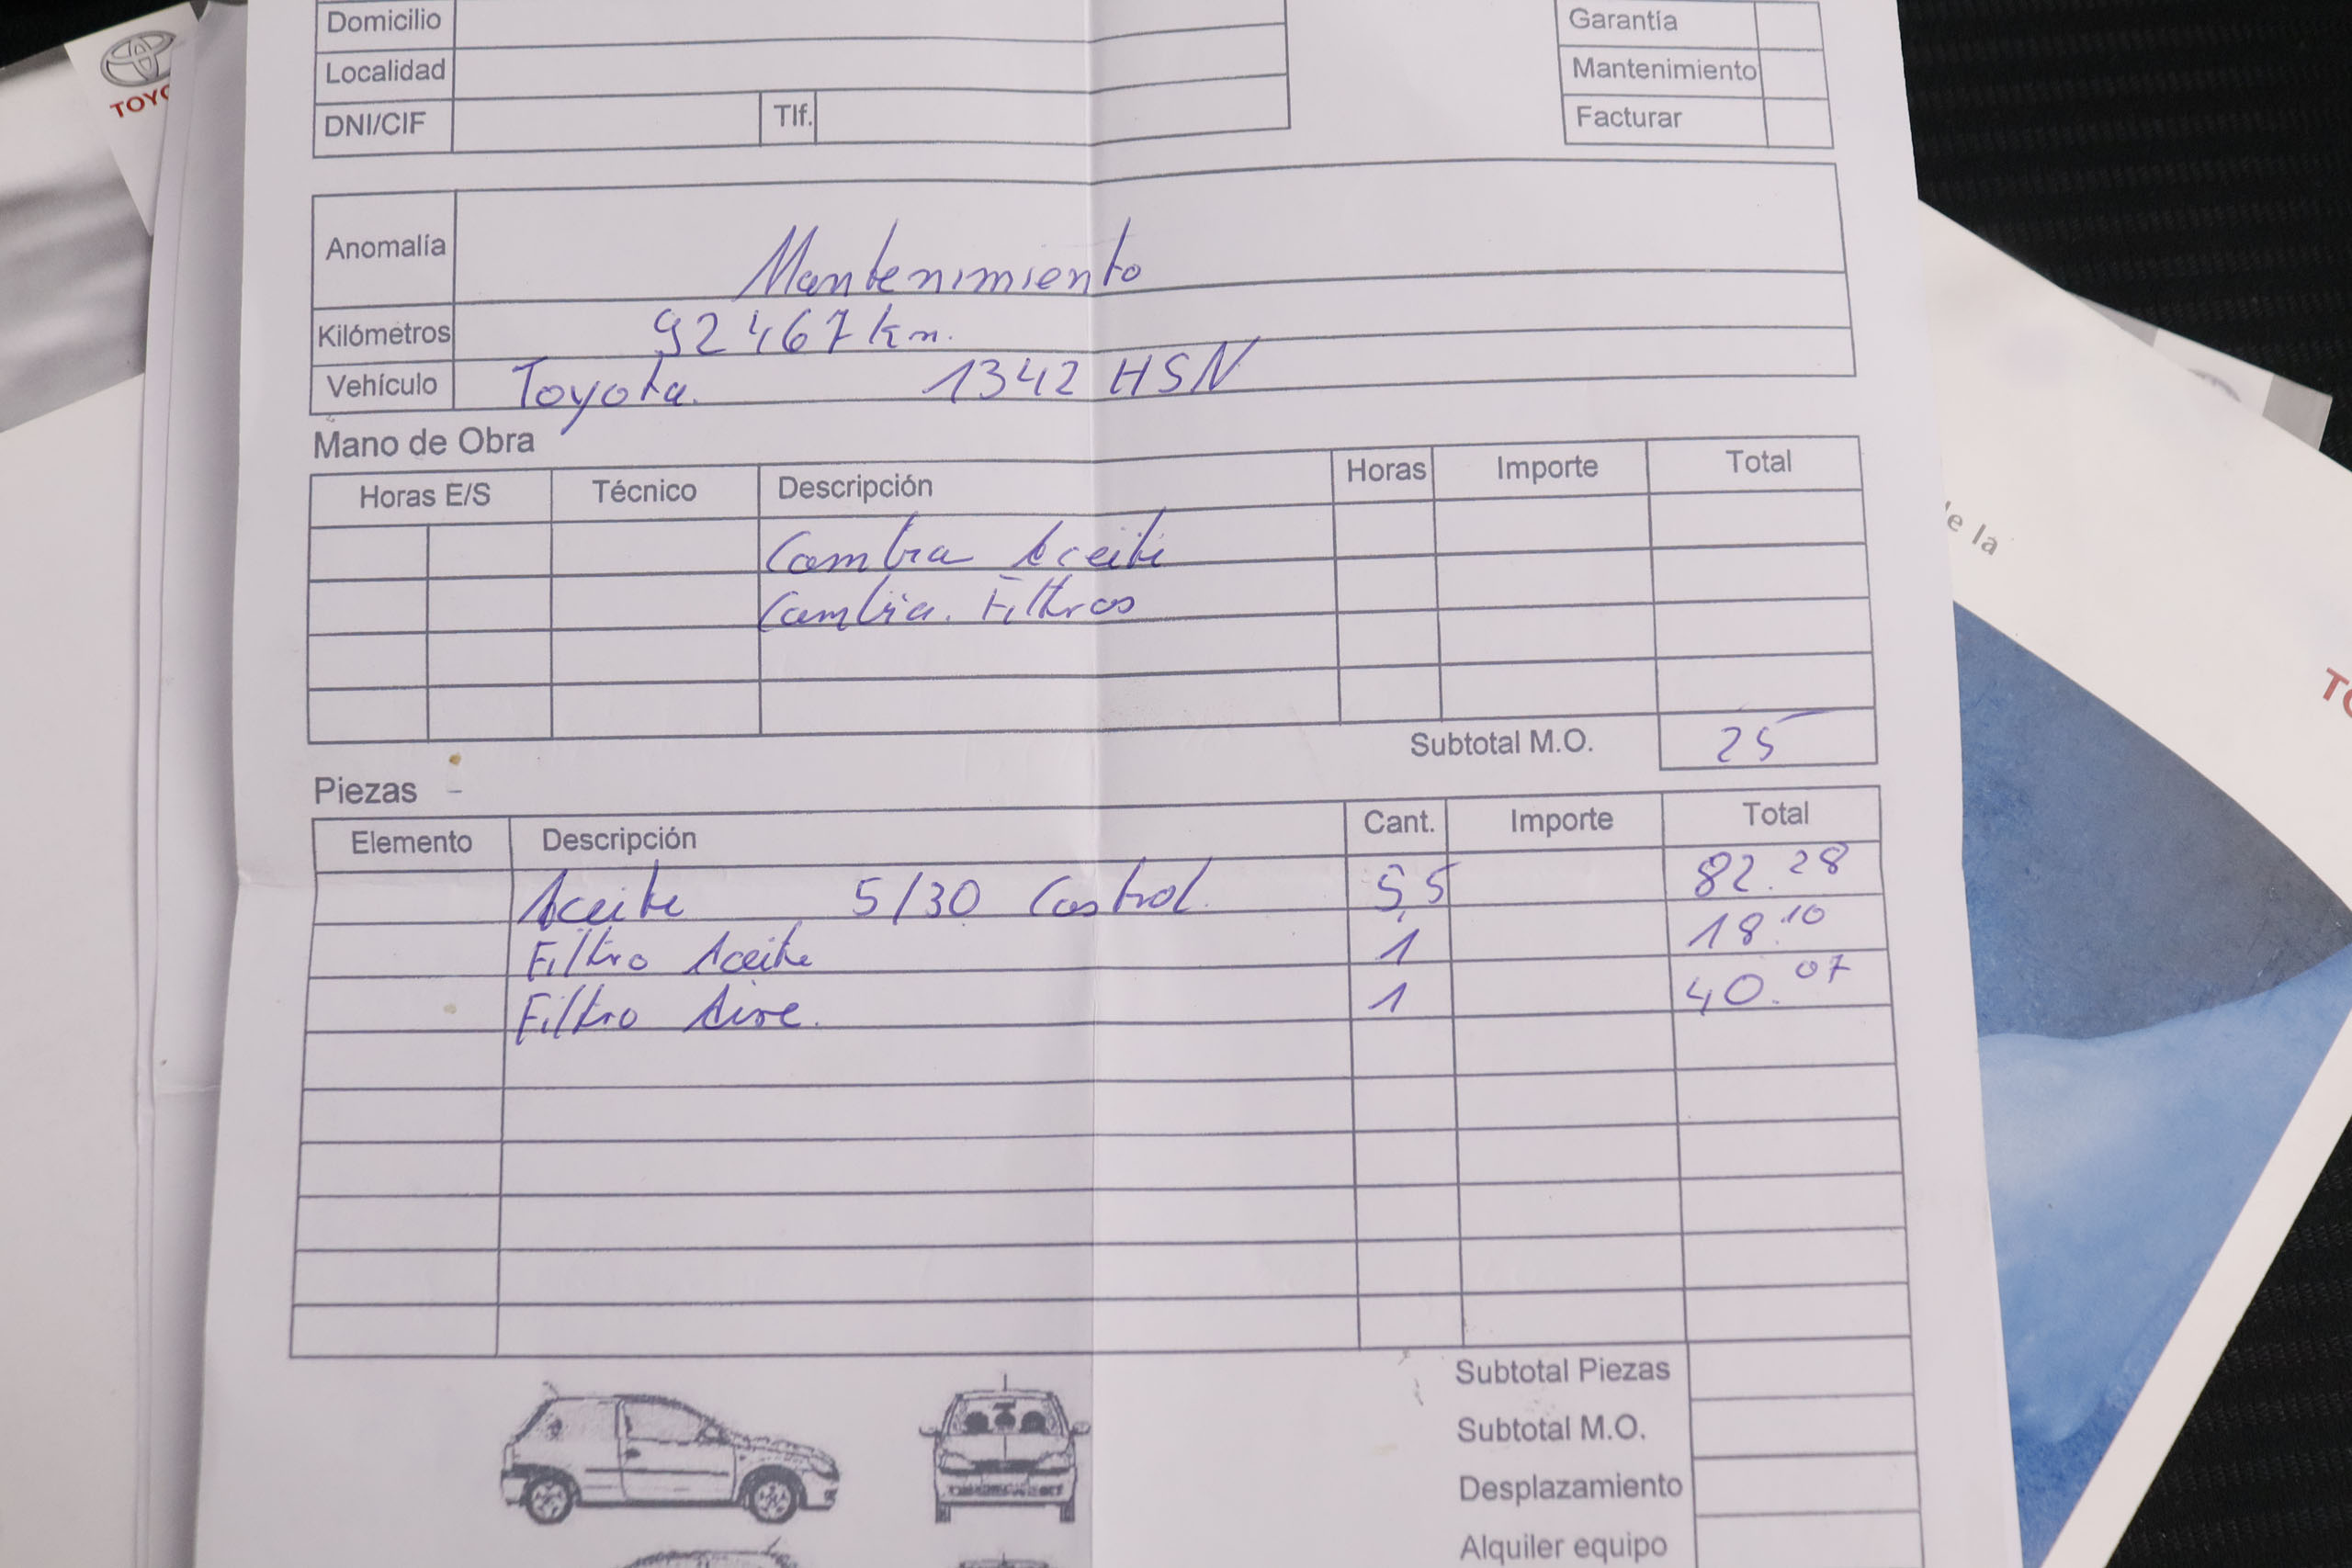 TOYO
Domicilio
Localidad
DNI/CIF Tlf.
Garantía
Mantenimiento
Facturar
Anomalía Mantenimiento
Kilómetros 92467 km.
Vehículo Toyota. 1342 HSN
Mano de Obra
Horas E/S Técnico Descripción Horas Importe Total
Cambia Aceite
Cambia. Filtros
Subtotal M.O. 25
Piezas
Elemento Descripción Cant. Importe Total
Aceite 5/30 Castrol. 5,5 82.28
Filtro Aceite 1 18.10
Filtro Aire. 1 40.07
Subtotal Piezas
Subtotal M.O.
Desplazamiento
Alquiler equipo
de la
TO